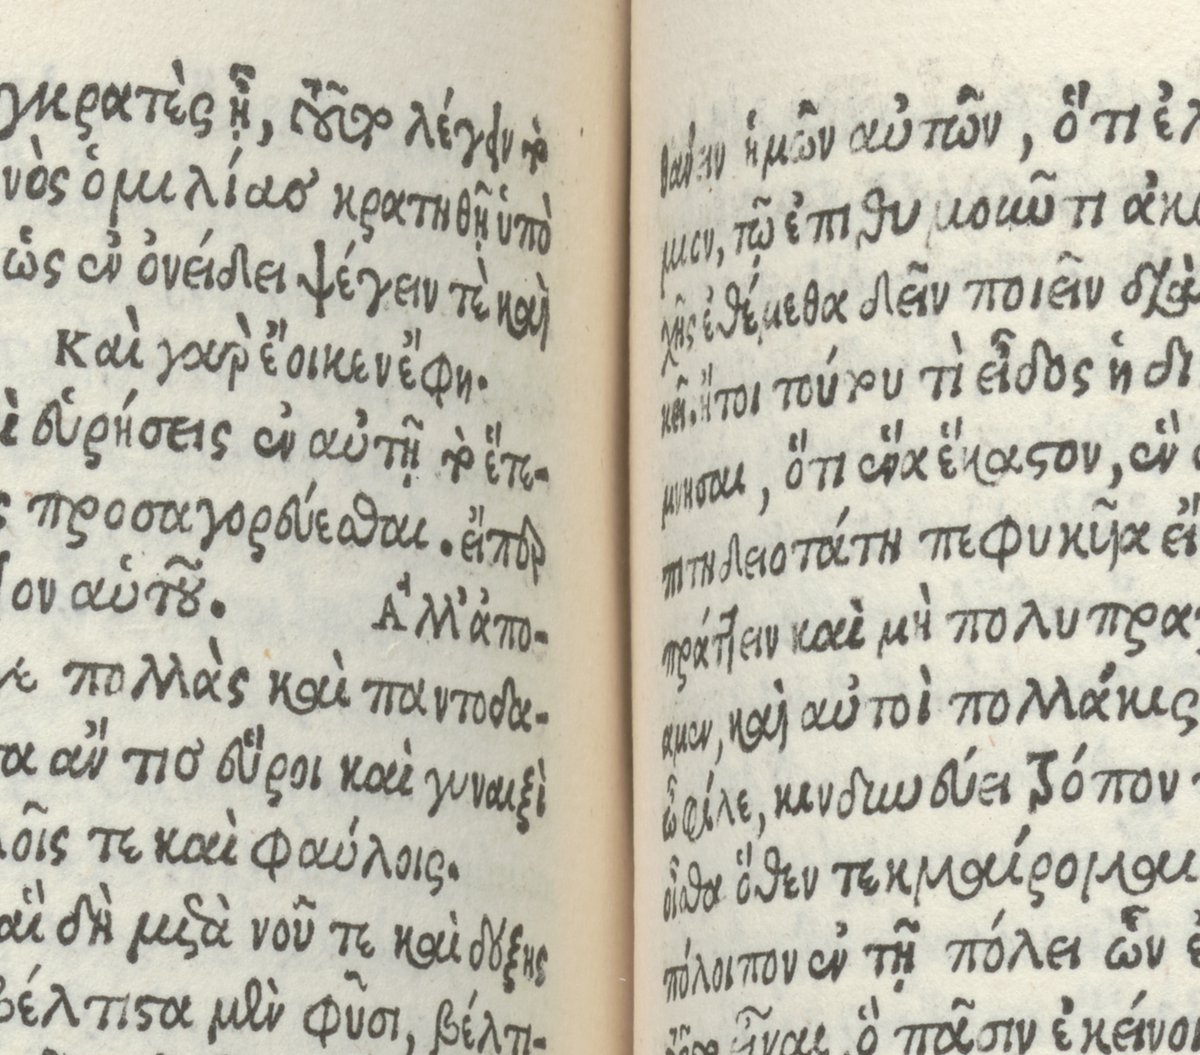 γκρατὲς ᾖ, τοῦτο λέγειν τὸ
νὸς ὁμιλίας κρατηθῇ ὑπὸ
ὡς ἐν ὀνείδει ψέγειν τὲ καὶ
Καὶ γὰρ ἔοικεν ἔφη.
εὑρήσεις ἐν αὐτῇ τὸ ἕτε-
προσαγορεύεσθαι. εἴπερ
ον αὑτοῦ. Ἀλλ' ἀπο-
πολλὰς καὶ παντοδα-
τα ἄν τις εὕροι καὶ γυναιξὶ
λοῖς τε καὶ φαύλοις.
αἳ δὴ μετὰ νοῦ τε καὶ δόξης
βέλτιστα μὲν φῦσι, βέλτι-
ἡμῶν αὐτῶν, ὅτι ἐλ
μεν, τῷ ἐπιθυμοῦντι ἀκ
χῆς ἐθέμεθα δεῖν ποιεῖν διὰ
ἤτοι τούτου τὶ εἶδος ἡ δι
μνησαι, ὅτι ἕνα ἕκαστον, ἓν
πιτηδειοτάτη πεφυκῦα εἴ
πράττειν καὶ μὴ πολυπρα
αμεν, καὶ αὐτοὶ πολλάκις
ὦ φίλε, κινδυνεύει τρόπον
οἶσθα ὅθεν τεκμαίρομαι
πόλοιπον ἐν τῇ πόλει ὧν ἐ
εἶναι, ὃ πᾶσιν ἐκείνοι